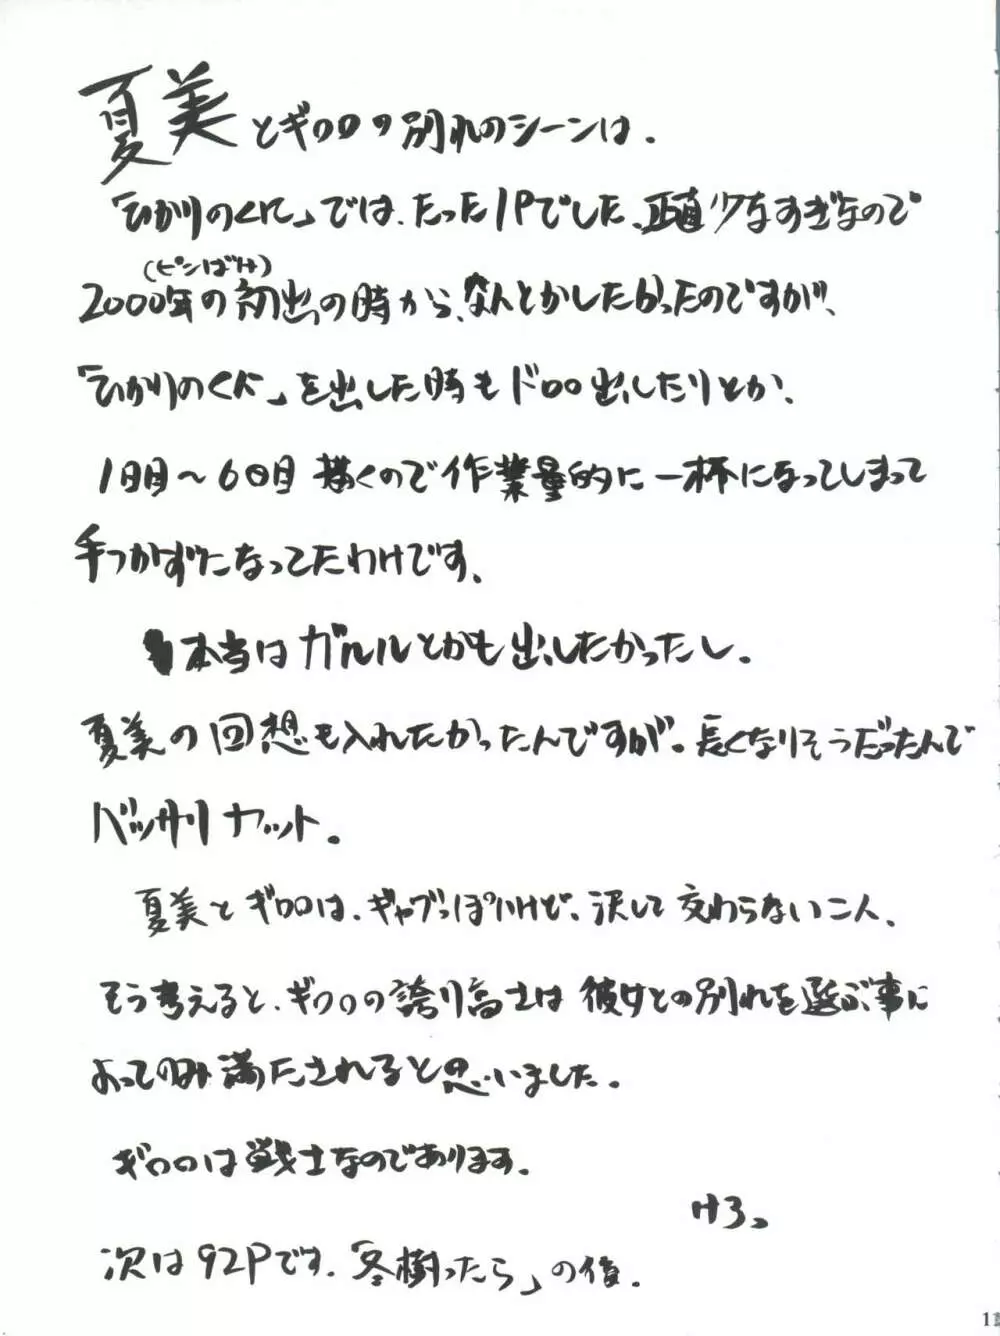 夏美とギロロの別れのシーンは、
「ひかりのくに」では、たった1Pでした、正直少なすぎなので
(ピンぼけ)
2000年の初出の時から、なんとかしたかったのですが、
「ひかりのくに」を出した時もドロロ出したりとか、
1日目〜6日目 描くので作業量的に一杯になってしまって
手つかずになってたわけです、
本当はガルルとかも出したかったし、
夏美の回想も入れたかったんですが、長くなりそうだったんで
バッサリカット。
夏美とギロロは、ギャグっぽいけど、決して交わらない二人、
そう考えると、ギロロの誇り高さは彼女との別れを選ぶ事に
よってのみ満たされると思いました。
ギロロは戦士なのであります。
けろっ
次は92Pです、「冬樹ったら」の後。
11